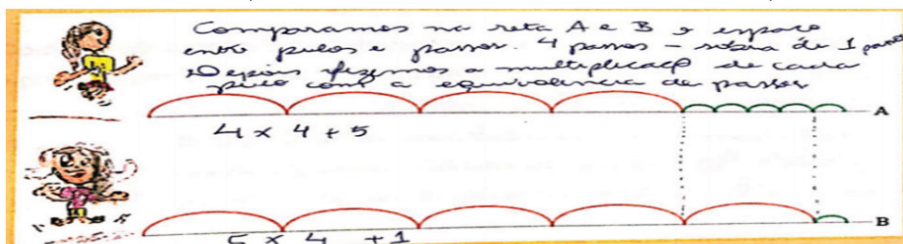 Comparamos na reta A e B o espaço
entre pulos e passos. 4 passos – sobra de 1 passo
Depois fizemos a multiplicação de cada
pulo com a equivalência de passos
A
4 x 4 + 5
B
5 x 4 + 1